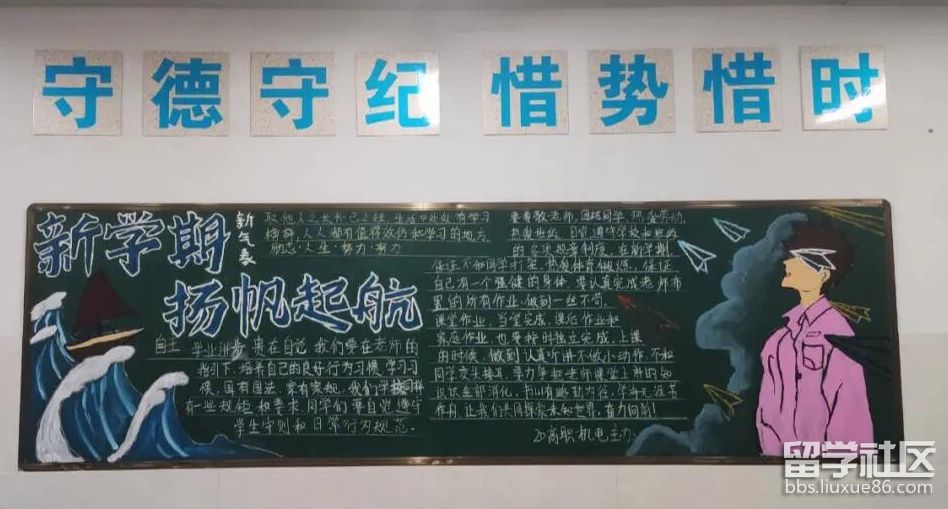 守德守纪 惜势惜时
新学期
新气象
扬帆起航
取他人之长补己之短,生活中处处有学习
榜样,人人都有值得效仿和学习的地方,
励志人生 努力 努力
自主 学业进步 贵在自觉 我们要在老师的
指引下,培养自己的良好行为习惯,学习习
惯,国有国法,家有家规,我们学校同样
有一些规矩和要求 同学们要自觉遵守
学生守则和日常行为规范.
要尊敬老师,团结同学 热爱劳动,
热爱班级,自觉遵守学校和班级
的各项规章制度,在新学期
保证不和同学打架,热爱体育锻炼,保证
自己有一个强健的身体,要认真完成老师布
置的所有作业,做到一丝不苟.
课堂作业,当堂完成,课后作业和
家庭作业,也要按时独立完成,上课
的时候,做到认真听讲不做小动作,不和
同学交头接耳,要力争和老师课堂上讲的知
识全部消化,书山有路勤为径,学海无涯苦
作舟,让我们共同探索未知世界,奋力向前!
20高职机电主办
留学社区
bbs.liuxue86.com